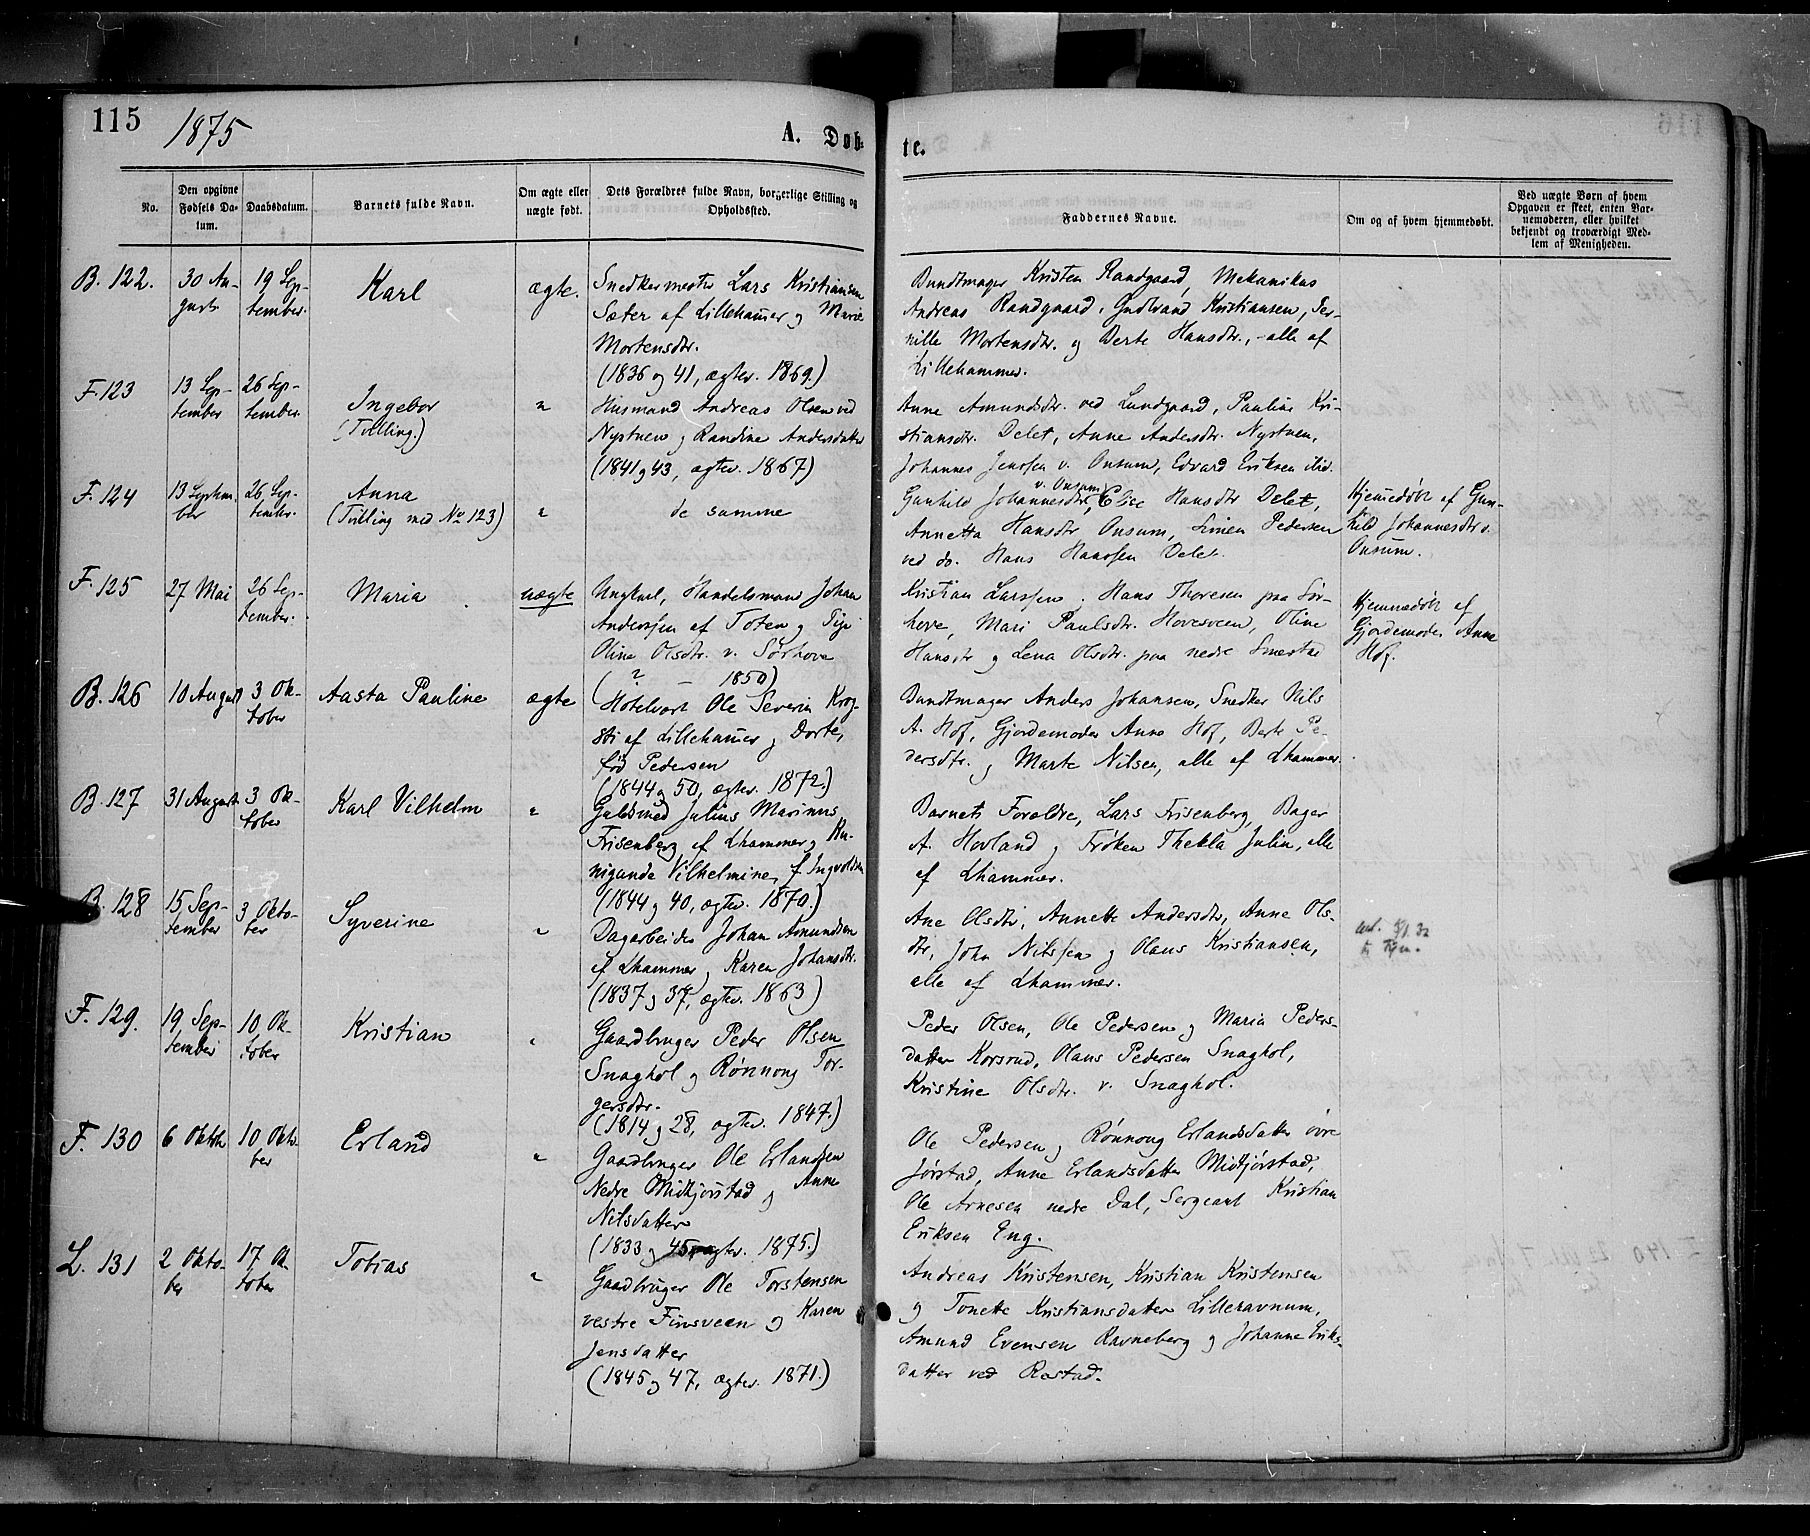 115
1875
A. Døb-
te.
No.
Den opgivne
Fødsels Da-
tum.
Daabsdatum.
Barnets fulde Navn.
Om ægte eller
uægte født.
Dets Forældres fulde Navn, borgerlige Stilling og
Opholdssted.
Faddernes Navne.
Om og af hvem hjemmedøbt.
Ved uægte Børn af hvem
Opgaven er skeet, enten Bar-
nemoderen, eller hvilket
bekjendt og troværdigt Med-
lem af Menigheden.
B. 122.
30 Au-
gust
19 Sep-
tember.
Karl
ægte.
Snedkermester Lars Kristiansen
Sæter af Lillehamer og Marie
Mortensdtr.
(1836 og 41, ægtev. 1869.)
Bundtmager Kristen Randgaard, Mekanikus
Andreas Randgaard, Gudbrand Kristiansen, Per-
nille Mortensdtr. og Berte Hansdtr., - alle af
Lillehammer.
F. 123
13 Sep-
tember
26 Sep-
tember.
Ingebor
(Tvilling.)
"
Husmand Andreas Olsen ved
Nystuen og Randine Andersdatter
(1841 og 43, ægtev. 1867)
Anne Amundsdtr. ved Lundgaard, Pauline Kri-
stiansdtr. Delet, Anne Andersdtr. Nystuen,
Johannes Jensen v. Onsum, Edvard Eriksen ibid.
F. 124
13 Septem-
ber
26 Sep-
tember.
Anna
(Tvilling med No 123)
"
de samme
v. Onsum
Gunhild Johannesdtr, Else Hansdtr Delet,
Annetta Hansdtr Onsum, Simen Pedersen
ved do. Hans Hanssen Delet.
Hjemmedøbt af Gun-
hild Johannesdtr v.
Onsum.
F. 125
27 Mai
26 Sep-
tember.
Maria
uægte
Ungkarl, Handelsmand Johan
Anderssen af Toten og Pige
Oline Olsdtr. v. Sørhove
(? - 1850)
Kristian Larssen, Hans Thoresen paa Sør-
hove, Mari Paulsdtr. Hovesveen, Oline
Hansdtr og Lena Olsdtr. paa nedre Smestad
Hjemmedøbt af
Gjordemoder Anne
Hof.
B. 126
10 August
3 Ok-
tober
Aasta Pauline
ægte
Hotelvært Ole Severin Krog-
sti af Lillehamer og Dorte,
fød Pedersen
(1844 og 50, ægtev. 1872.)
Bundtmager Anders Johansen, Snedker Nils
A. Hof, Gjordemoder Anne Hof, Berte Pe-
dersdtr. og Marte Nilsen, alle af Lhammer.
B. 127
31 August
3 Ok-
tober
Karl Vilhelm
"
Guldsmed Julius Marinius
Frisenberg af Lhammer og Ku-
nigunde Vilhelmine, f. Ingvoldsen
(1844 og 40, ægtev. 1870.)
Barnets Forældre, Lars Frisenberg, Bager
A. Hovland og Frøken Thekla Julin, alle
af Lhammer.
B. 128
15 Sep-
tember
3 Okto-
ber
Syverine
"
Dagarbeider Johan Amundsen
af Lhammer og Karen Johansdtr.
(1837 og 37, ægtev. 1863)
Ane Olsdtr, Annette Andersdtr, Anne Ols-
dtr, John Nilssen og Olaus Kristiansen,
alle af Lhammer.
F. 129.
19 Sep-
tember
10 Ok-
tober
Kristian
"
Gaardbruger Peder Olsen
Snaghol og Rønnong Tor-
gersdtr.
(1814 og 28, ægtev. 1847.)
Peder Olsen, Ole Pedersen og Maria Peders-
datter Korsrud, Olaus Pedersen Snaghol,
Kristine Olsdtr. v. Snaghol.
F. 130
6 Oktob.
10 Okto-
ber
Erland
"
Gaardbruger Ole Erlandsen
Nedre Midtjørstad og Anne
Nilsdatter
(1833 og 45, ægtev. 1875.)
Ole Pedersen, Rønnong Erlandsdatter øvre
Jørstad, Anne Erlandsdatter Midtjørstad,
Ole Arnesen nedre Dal, Sergeant Kristian
Eriksen Eng.
L. 131
2 Okto-
ber
17 Ok-
tober
Tobias
"
Gaardbruger Ole Torstensen
vestre Finsveen og Karen
Jensdatter
(1845 og 47, ægtev. 1871.)
Andreas Kristensen, Kristian Kristensen
og Tonette Kristiansdatter Lilleravnum,
Amund Evensen Ravneberg og Johanne Eriks-
datter ved Rostad.